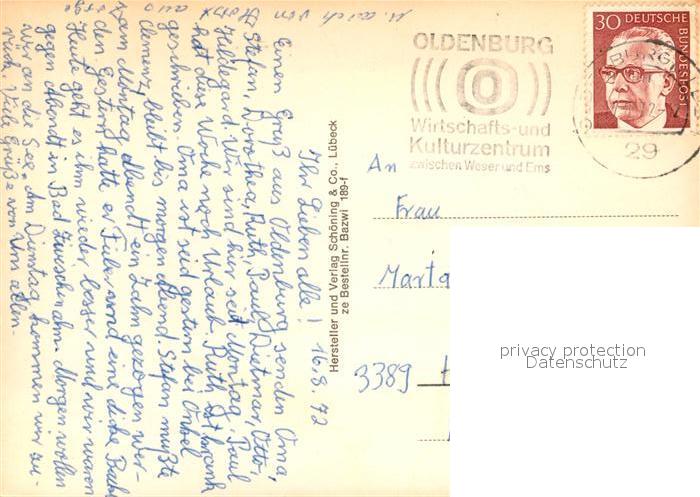 u. auch von
Ihr Lieben alle! 16.8.72
Einen Gruß aus Oldenburg senden Oma,
Stefan, Dorothea, Ruth, Paul Dietmar, Otto,
Hildegard. Wir sind hier seit Montag, Paul
hat diese Woche noch Urlaub. Ruth ist krank
geschrieben. Oma ist seid gestern bei Onkel
Clemenz, bleibt bis morgen Abend. Stefan mußte
am Montag Abendt ein Zahn gezogen wer-
den. Gestern hatte er Fieber und eine dicke
Heute geht es ihm wieder besser und wir waren
gegen Abendt in Bad Zwischenahn. Morgen wollen
wir an die See. Am Dienstag kommen wir zu-
rück. Viele Grüße von Uns allen.
Hersteller und Verlag Schöning & Co., Lübeck
ze Bestellnr. Bazwi 189-f
OLDENBURG
Wirtschafts-und
Kulturzentrum
zwischen Weser und Ems
30 DEUTSCHE
BUNDESPOST
29
An
Frau
Marta
3389
privacy protection
Datenschutz